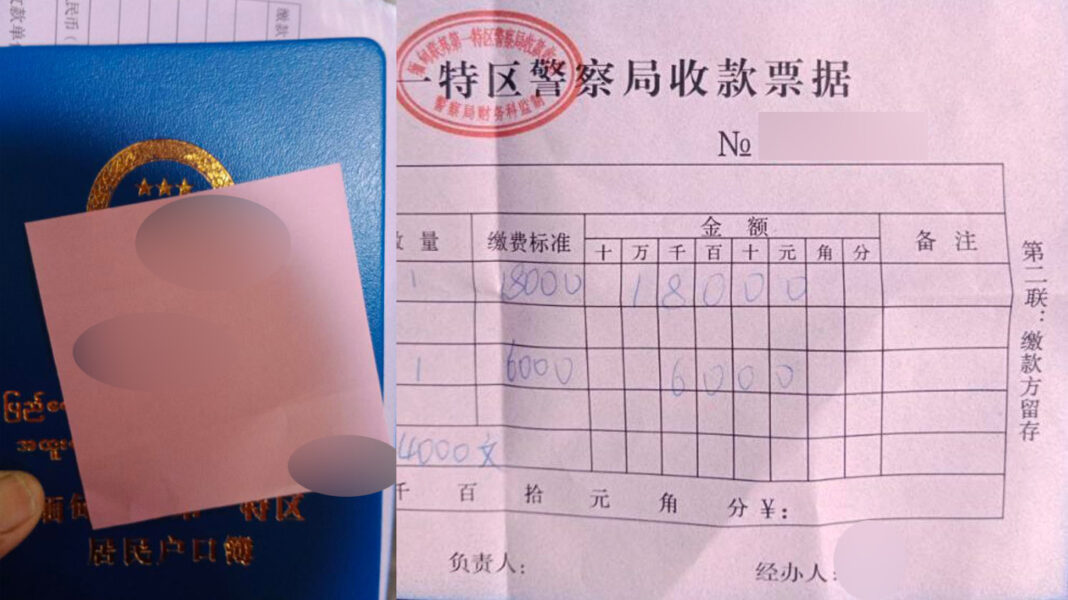 缴款
民币（
收款单
ပြည်ထ
အထူး
特区
居民户口簿
缅甸联邦第一特区警察局收款
警察局财务科监制
一特区警察局收款票据
№
数量 缴费标准 金额 备注
十 万 千 百 十 元 角 分
1 18000 1 8 0 0 0
1 6000 6 0 0 0
4000文
千 百 拾 元 角 分 ¥：
负责人：
经办人：
第二联：缴款方留存